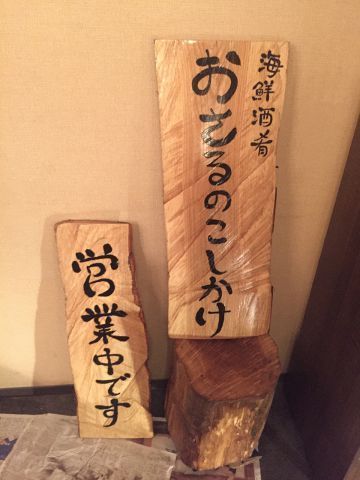 海鮮酒肴
おさるのこしかけ
営業中です